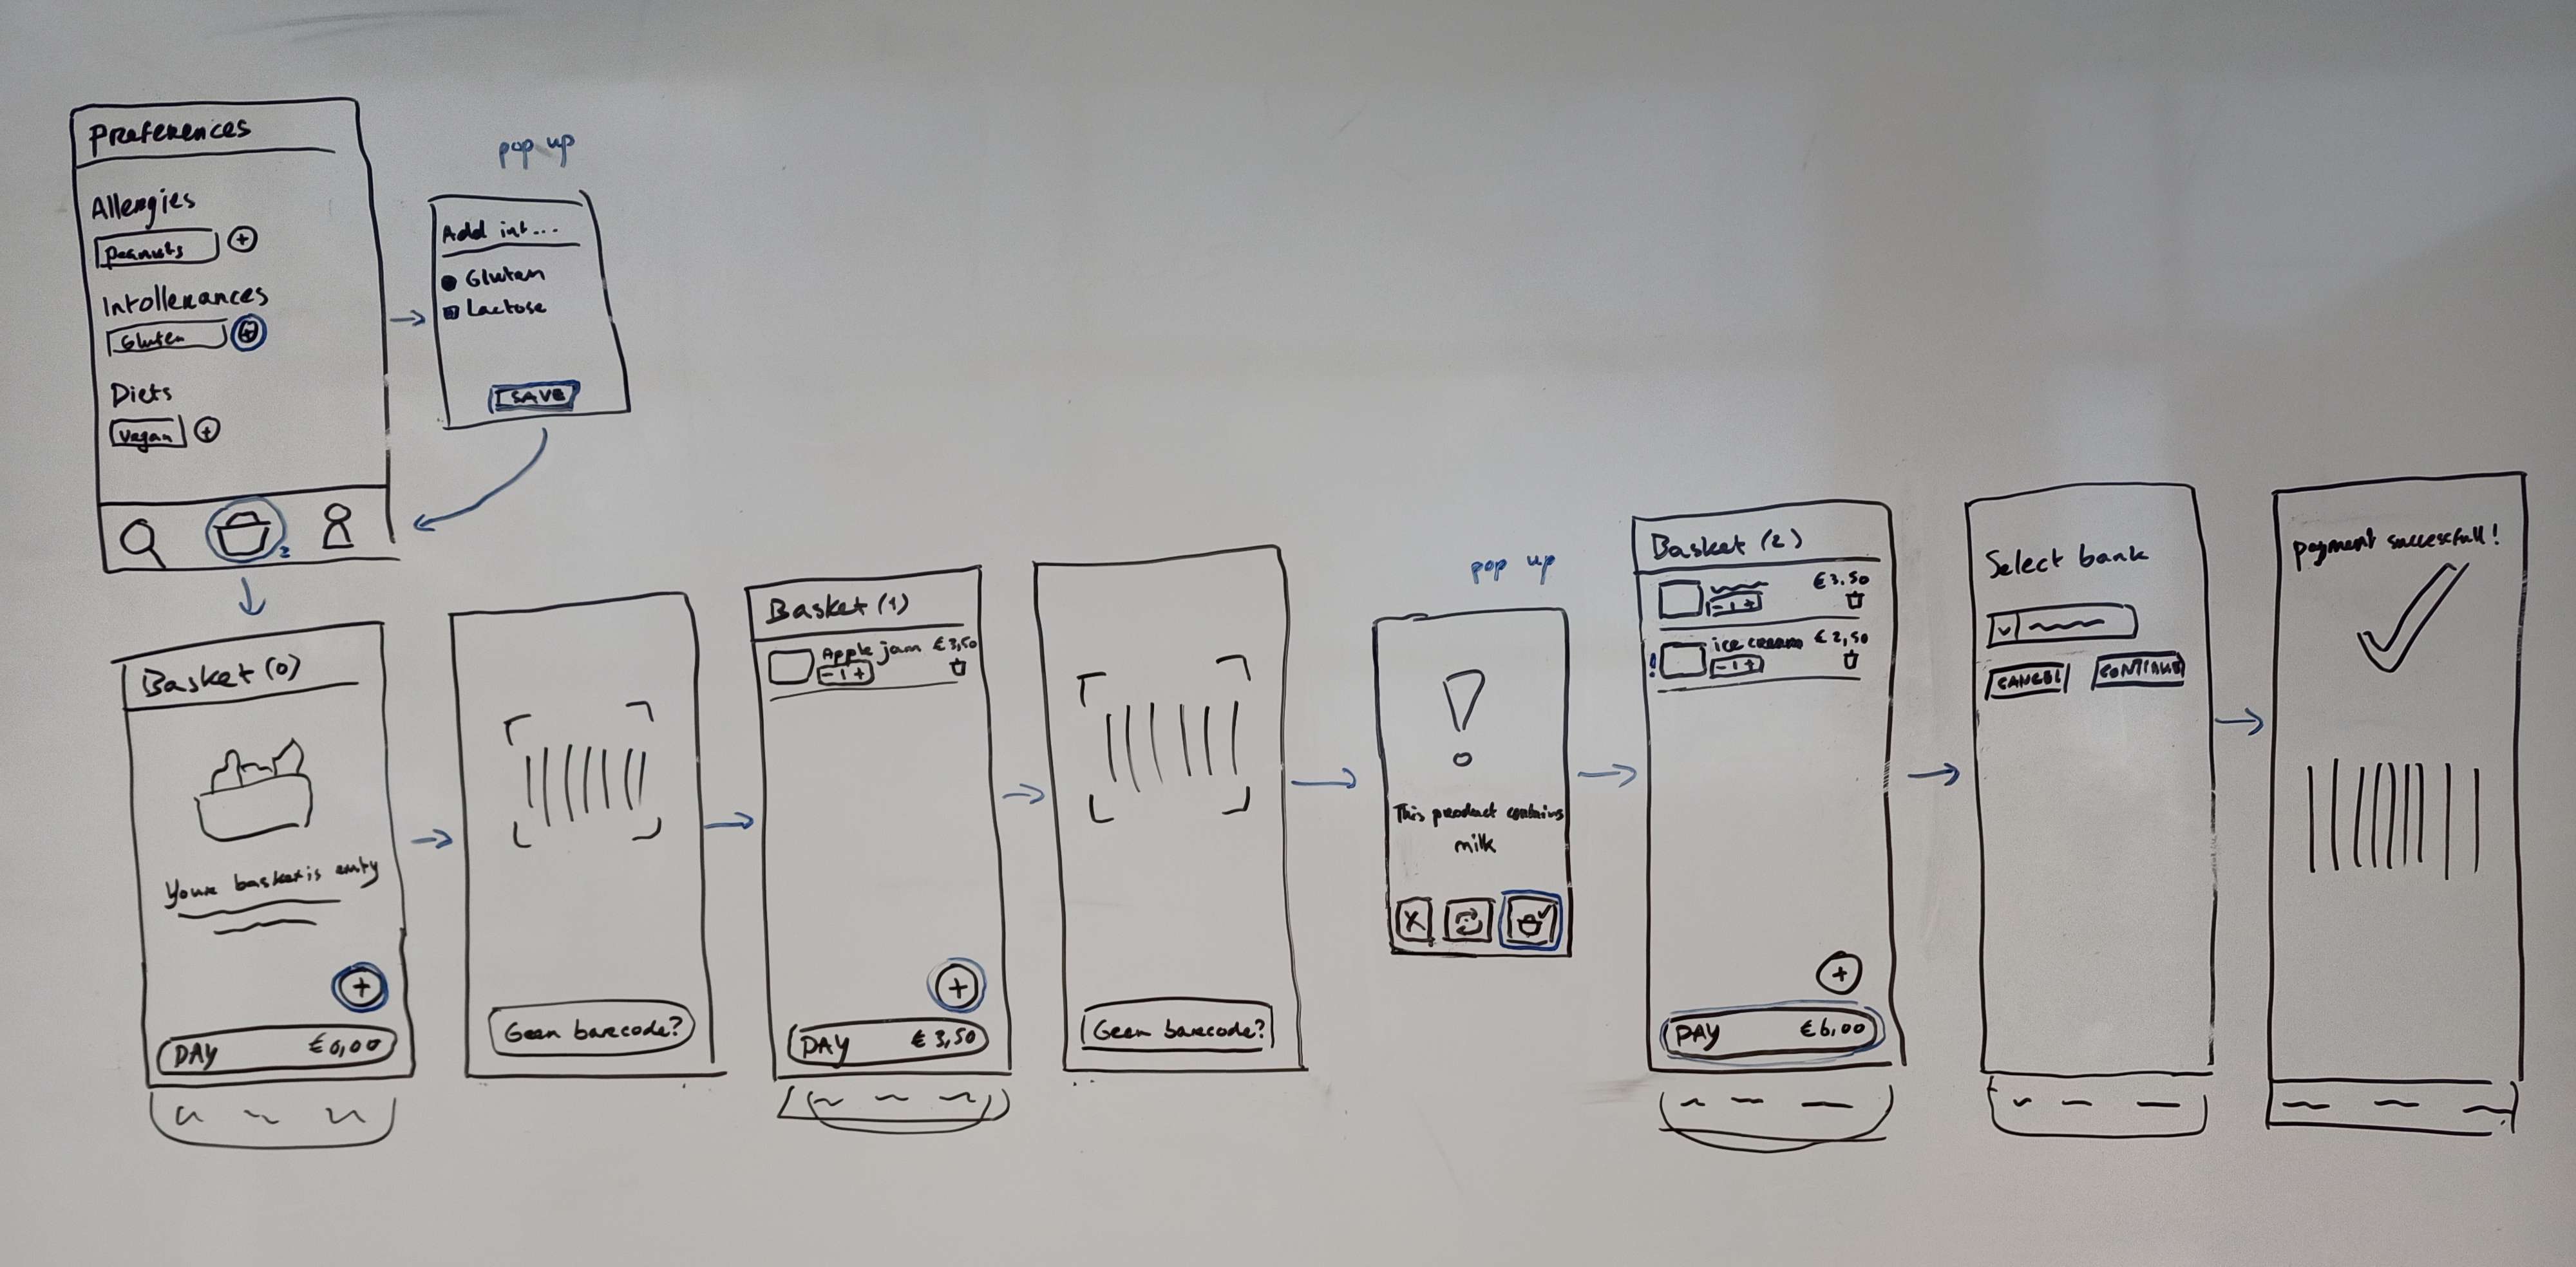 Preferences
Allergies
peanuts +
Intollerances
Gluten
Diets
vegan +
2
pop up
Add int...
Gluten
Lactose
SAVE
Basket (0)
Your basket is emty
+
PAY €0,00
Geen barcode?
Basket (1)
Apple jam €3,50
- 1 +
+
PAY €3,50
Geen barcode?
pop up
!
This product contains
milk
X
Basket (2)
€3.50
- 1 +
! ice cream €2,50
- 1 +
+
PAY €6,00
Select bank
CANCEL CONTINUE
payment successfull!